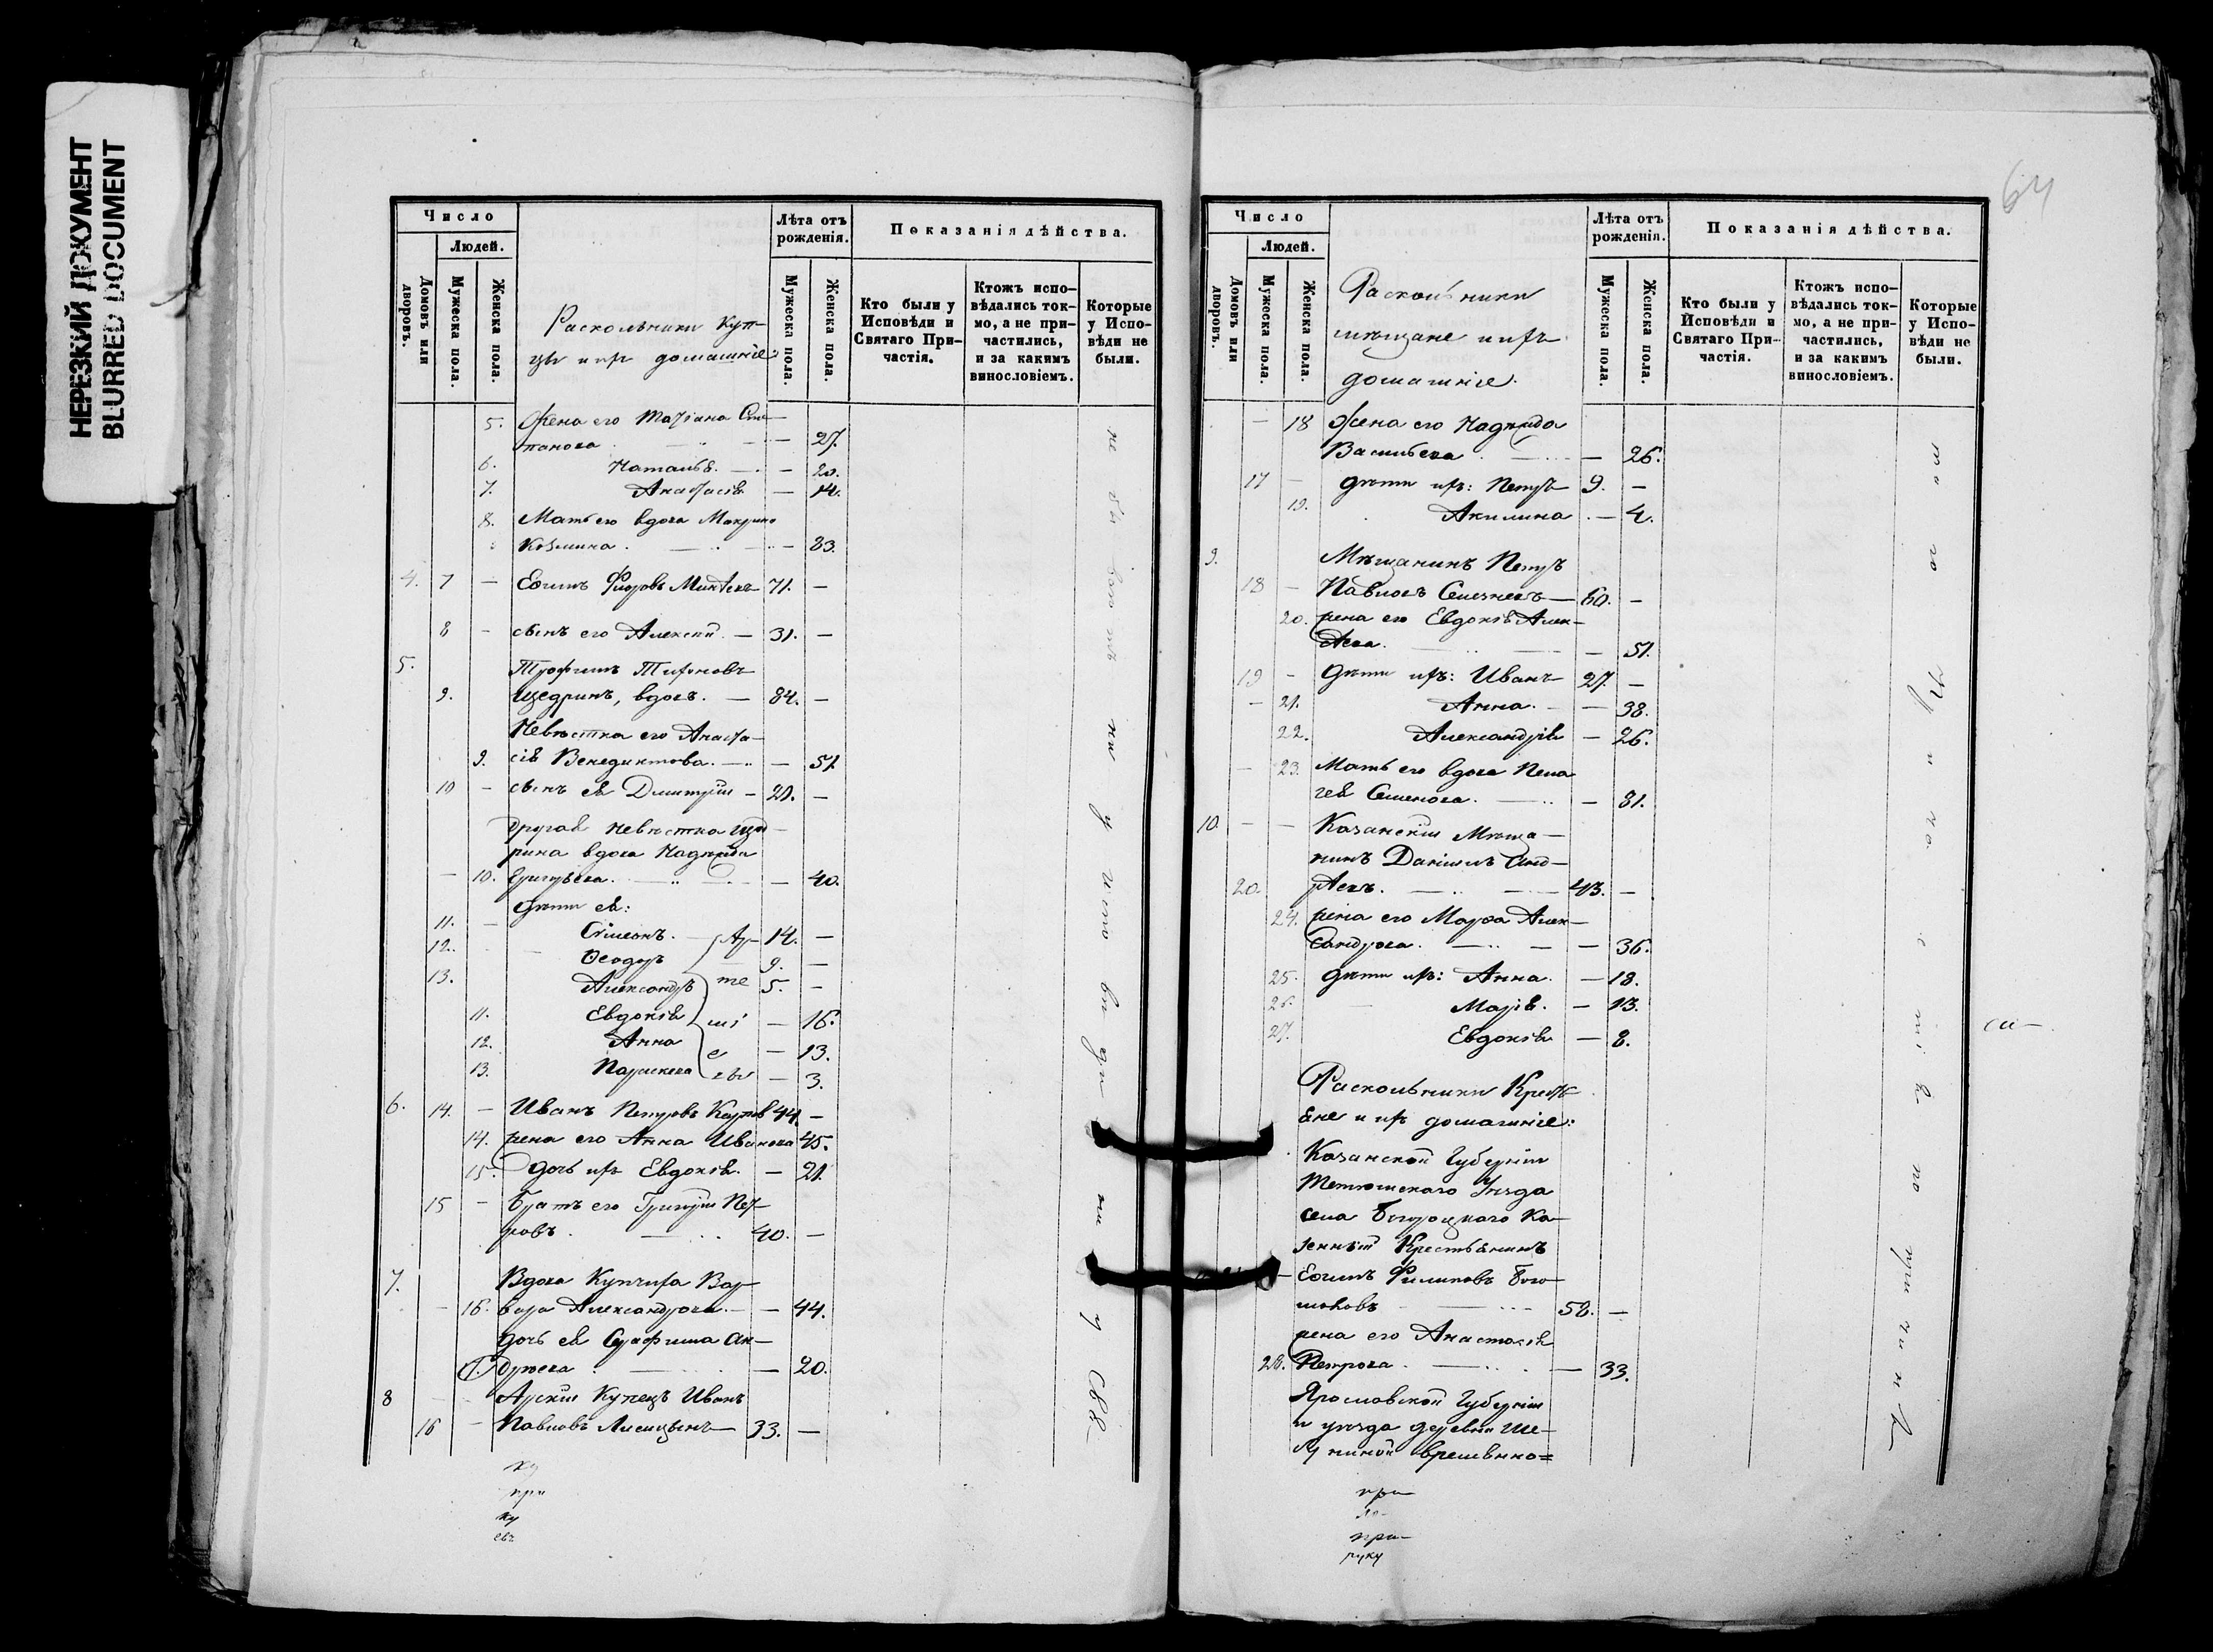 НЕРЕЗКИЙ ДОКУМЕНТ
BLURRED DOCUMENT
Число
Людей.
Домовъ или дворовъ.
Мужеска пола.
Женска пола.
Раскольники Куп-
цы и ихъ домашніе:
Лѣта отъ рожденія.
Мужеска пола.
Женска пола.
Показанія дѣйства.
Кто были у Исповѣди и Святаго Причастія.
Ктожъ исповѣдались токмо, а не причастились, и за какимъ винословіемъ.
Которые у Исповѣди не были.
5. Жена его Татіана Сте-
панова — 27.
6. Наталья — 20.
7. Анастасія — 14.
8. Мать его вдова Макрина
Козмина — 83.
4. 7 — Ефимъ 71. —
8 — сынъ его Алексѣй — 31. —
5. Трофимъ Тихоновъ
9. Щедринъ, вдовъ. — 84. —
Невѣстка его Анаста-
9. сія Венедиктова — 51.
10 — сынъ ея Димитрій — 20. —
Другая невѣстка Щед-
рина вдова Надежда
— 10. Григорьева — 40.
Дѣти ея:
11. — Симеонъ. 14. —
12. — Ѳеодоръ 9. —
13. Александръ 5. —
11. Евдокія — 16.
12. Анна — 13.
13. Параскева — 3.
6. 14. — Иванъ Петровъ 44. —
14. жена его Анна Иванова 45.
15. Дочь ихъ Евдокія — 21.
15 — Братъ его Григорій Пет-
ровъ 40. —
7. Вдова Купчиха Вар-
— 16. вара Александрова — 44.
Дочь ея Серафима Ан-
дреева — 20.
8 Арскій Купецъ Иванъ
16 — Павловъ Лисицынъ 33. —
64
Число
Людей.
Домовъ или дворовъ.
Мужеска пола.
Женска пола.
Раскольники
мѣщане и ихъ
домашніе.
Лѣта отъ рожденія.
Мужеска пола.
Женска пола.
Показанія дѣйства.
Кто были у Исповѣди и Святаго Причастія.
Ктожъ исповѣдались токмо, а не причастились, и за какимъ винословіемъ.
Которые у Исповѣди не были.
— 18 Жена его Надежда
Васильева — 26.
17 — Дѣти ихъ: Петръ 9. —
19. Акилина — 4.
9. Мѣщанинъ Петръ
18 — Павловъ 60. —
20. жена его Евдокія Алек-
сѣева — 51.
19 — Дѣти ихъ: Иванъ 27. —
— 21. Анна — 38.
22. Александрія — 26.
— 23. Мать его вдова Пела-
гея Семенова — 81.
10. — — Казанскій Мѣща-
нинъ Даніилъ Анд-
20. рѣевъ 43. —
24. жена его Марѳа Алек-
сандрова — 36.
25. Дѣти ихъ: Анна — 18.
26. Марія — 13.
27. Евдокія — 8.
Раскольники Кресть-
яне и ихъ домашніе:
Казанской Губерніи
Тетюшскаго Уѣзда
села Богородскаго Ка-
зенный Крестьянинъ
Ефимъ Филиповъ
58. —
жена его Анастасія
28. Петрова — 33.
Ярославской Губерніи
и уѣзда деревни Ше-